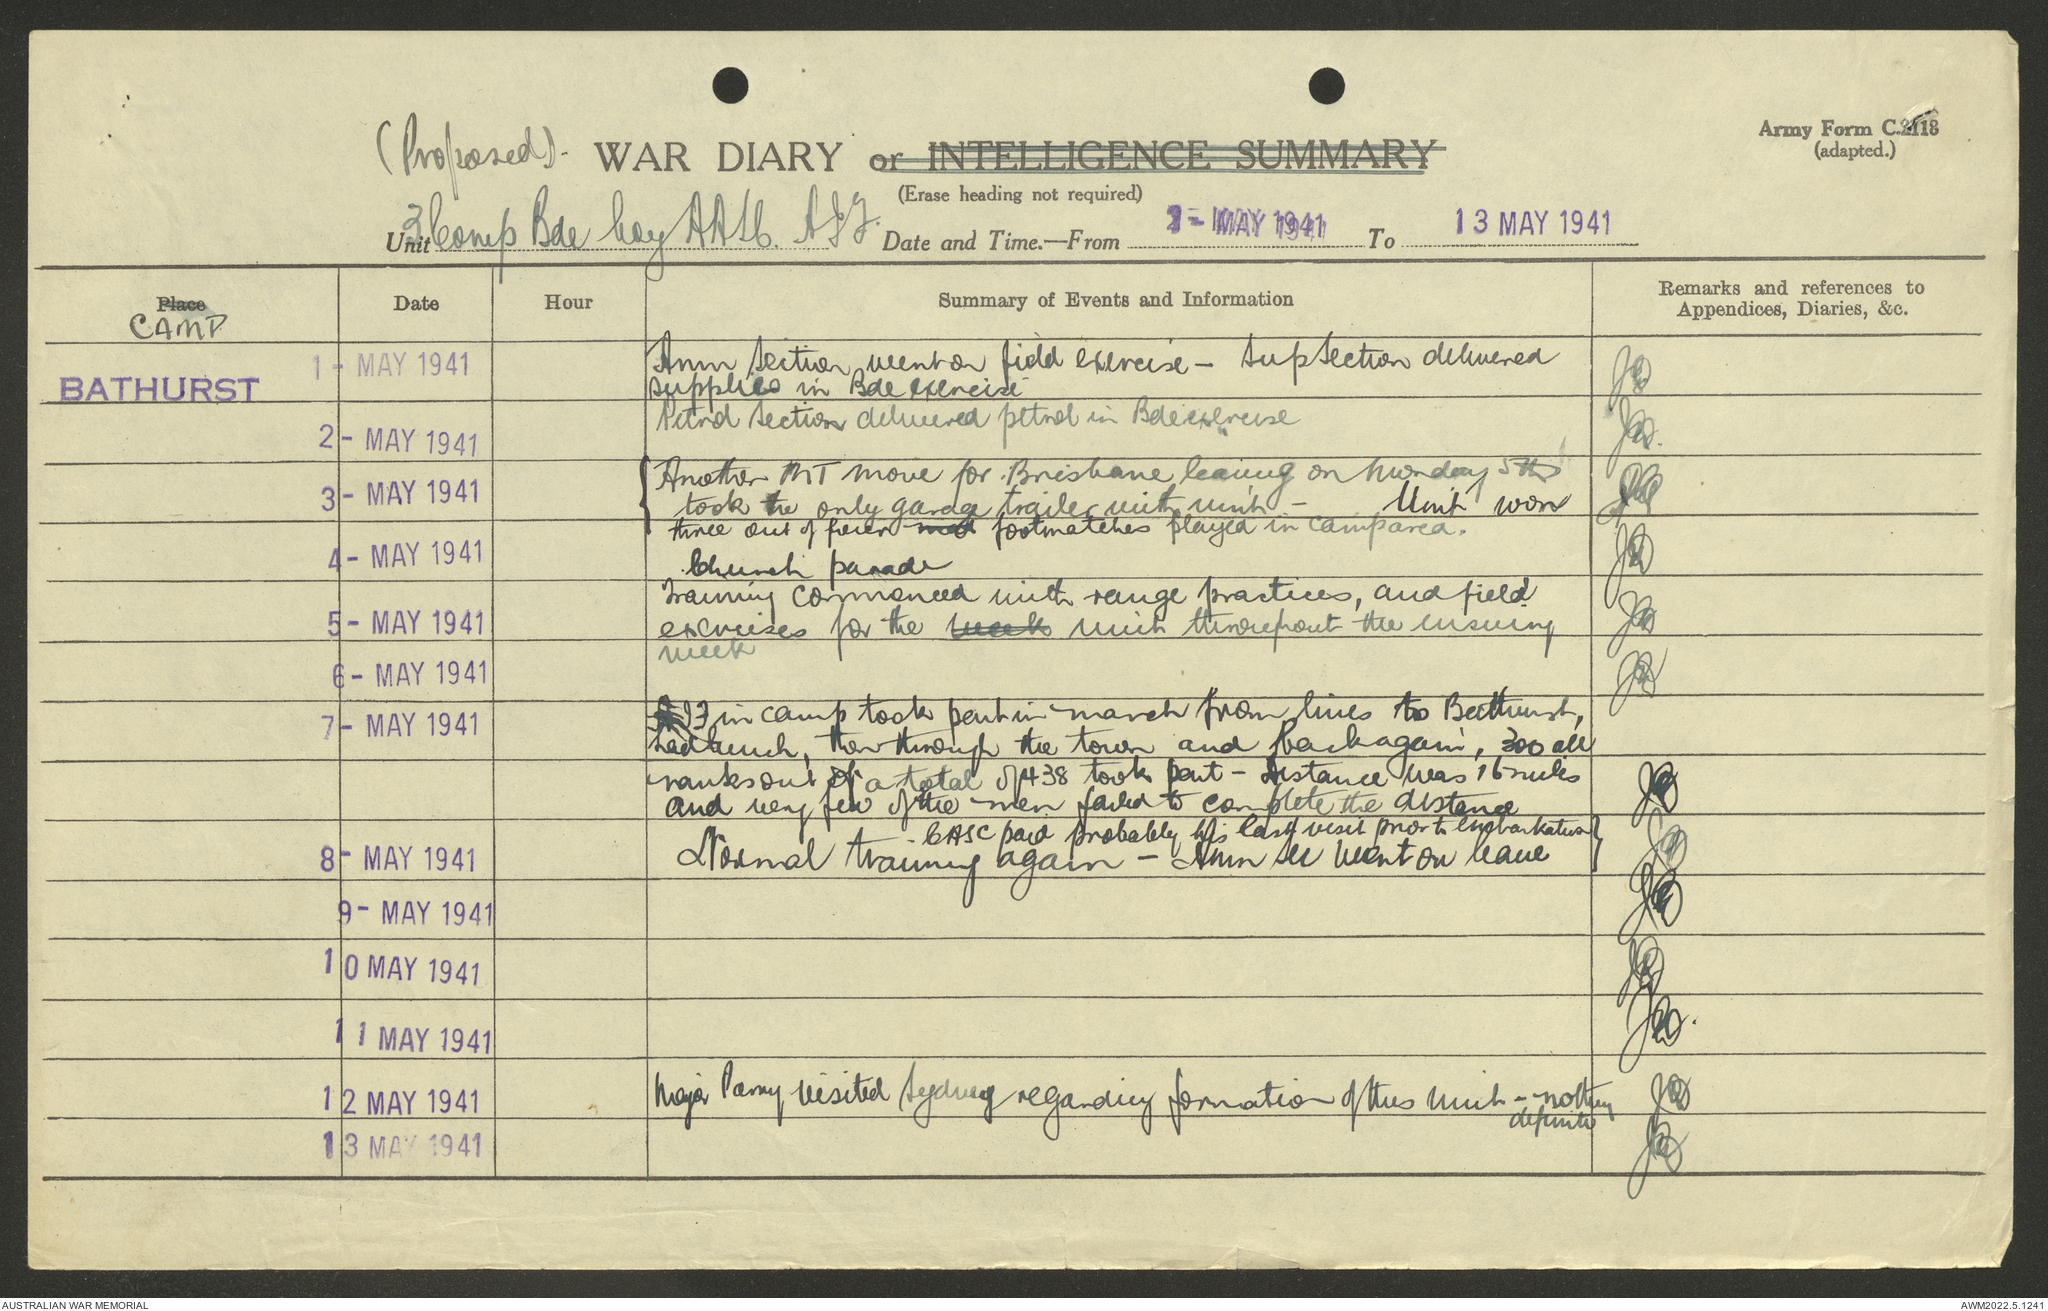 Army Form C.2118
(adapted.)
(Proposed). WAR DIARY or INTELLIGENCE SUMMARY
(Erase heading not required)
Unit 3 Comp Bde Coy AASC. AIF. Date and Time.—From 1- MAY 1941 To 13 MAY 1941
Place Date Hour Summary of Events and Information Remarks and references to
CAMP Appendices, Diaries, &c.
BATHURST 1- MAY 1941 Amn Section went on field exercise - Sup Section delivered
supplies in Bde exercise
2- MAY 1941 Petrol Section delivered petrol in Bde exercise
Another MT move for Brisbane leaving on Monday 5th
3- MAY 1941 took the only garage trailer with unit - Unit won
three out of four footmatches played in camp area.
4- MAY 1941 Church parade
Training commenced with range practices, and field
5- MAY 1941 exercises for the week unit throughout the ensuing
week
6- MAY 1941
7- MAY 1941 in camp took part in march from lines to Bathurst,
had lunch, then through the town and back again, 300 all
ranks out of a total of 438 took part - distance was 16 miles
and very few of the men failed to complete the distance
CASC paid probably his last visit prior to embarkation
8- MAY 1941 Normal training again - Amn sec went on leave
9- MAY 1941
10 MAY 1941
11 MAY 1941
12 MAY 1941 Major Parry visited Sydney regarding formation of this unit - nothing
definite
13 MAY 1941
AUSTRALIAN WAR MEMORIAL AWM2022.5.1241